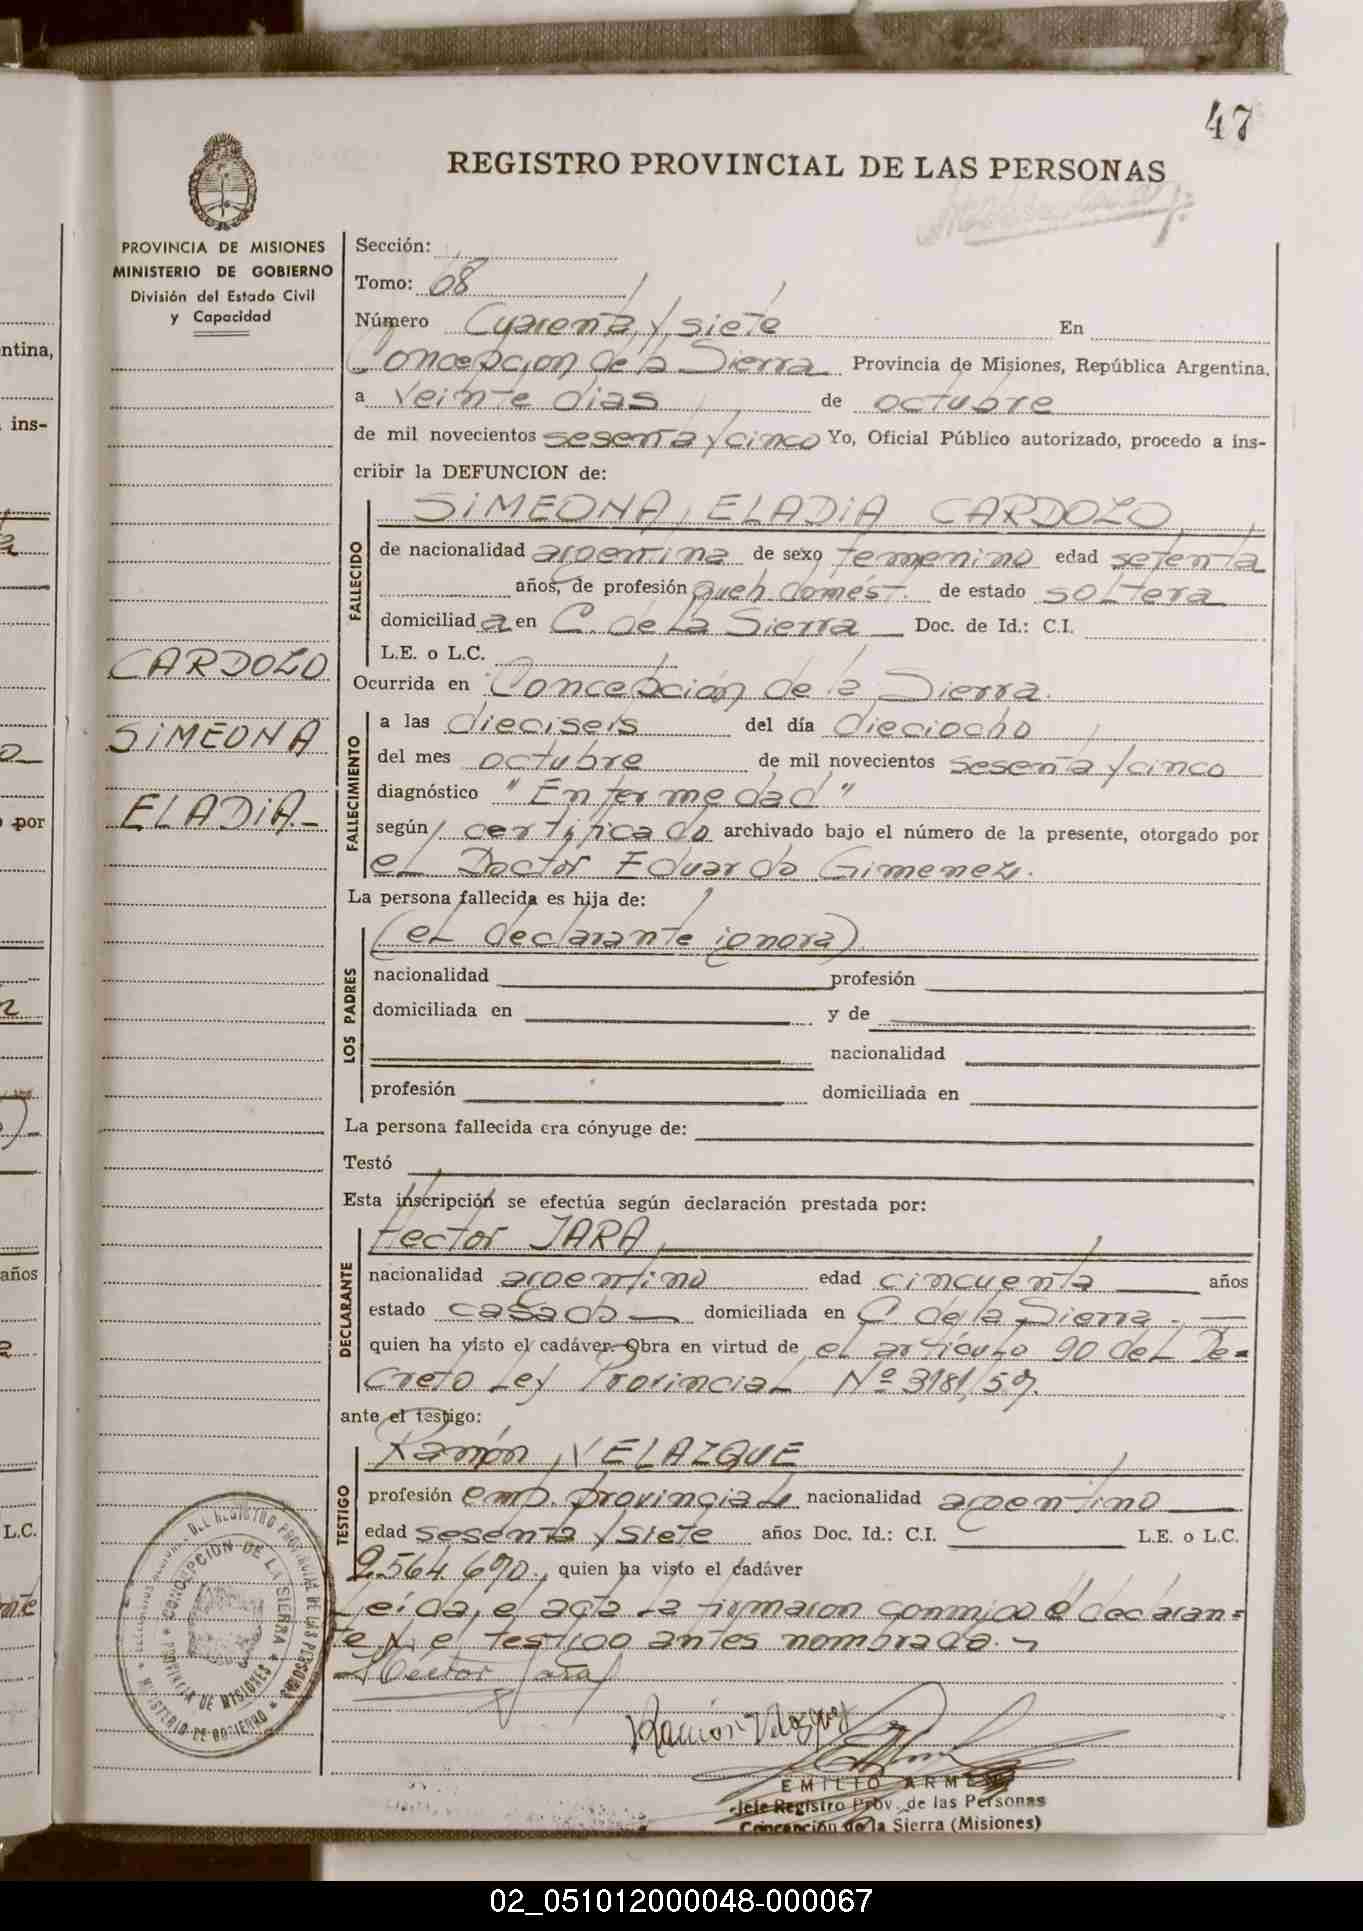 47
REGISTRO PROVINCIAL DE LAS PERSONAS
PROVINCIA DE MISIONES
MINISTERIO DE GOBIERNO
División del Estado Civil
y Capacidad
CARDOZO
SIMEONA
ELADIA.-
Sección:
Tomo: 68
Número Cuarenta y siete En
Concepción de la Sierra Provincia de Misiones, República Argentina,
a veinte dias de octubre
de mil novecientos sesenta y cinco Yo, Oficial Público autorizado, procedo a ins-
cribir la DEFUNCION de:
SIMEONA, ELADIA CARDOZO
FALLECIDO
de nacionalidad argentina de sexo femenino edad setenta
años, de profesión queh. domést. de estado soltera
domiciliad a en C. de La Sierra Doc. de Id.: C.I.
L.E. o L.C.
Ocurrida en Concepción de la Sierra.
FALLECIMIENTO
a las dieciseis del día dieciocho
del mes octubre de mil novecientos sesenta y cinco
diagnóstico "Enfermedad"
según certificado archivado bajo el número de la presente, otorgado por
el Doctor Eduardo Gimenez.
La persona fallecida es hija de:
LOS PADRES
(el declarante ignora)
nacionalidad profesión
domiciliada en y de
nacionalidad
profesión domiciliada en
La persona fallecida era cónyuge de:
Testó
Esta inscripción se efectúa según declaración prestada por:
DECLARANTE
Hector JARA
nacionalidad argentino edad cincuenta años
estado casado domiciliada en C. de la Sierra.
quien ha visto el cadáver. Obra en virtud de el artículo 90 del De=
creto Ley Provincial Nº 3181/59.
ante el testigo:
TESTIGO
Ramón VELAZQUE
profesión emp. provincial nacionalidad argentino
edad sesenta y siete años Doc. Id.: C.I. L.E. o L.C.
2.564.690., quien ha visto el cadáver
Leída, el acta la firmaron conmigo el declaran=
te y el testigo antes nombrado.
Héctor Jara
Ramón Velazquez
EMILIO
Jefe Registro Prov. de las Personas
Concepción de la Sierra (Misiones)
CONCEPCION DE LA SIERRA
PROVINCIA DE MISIONES
MINISTERIO DE GOBIERNO
ntina,
ins-
por
años
L.C.
02_051012000048-000067